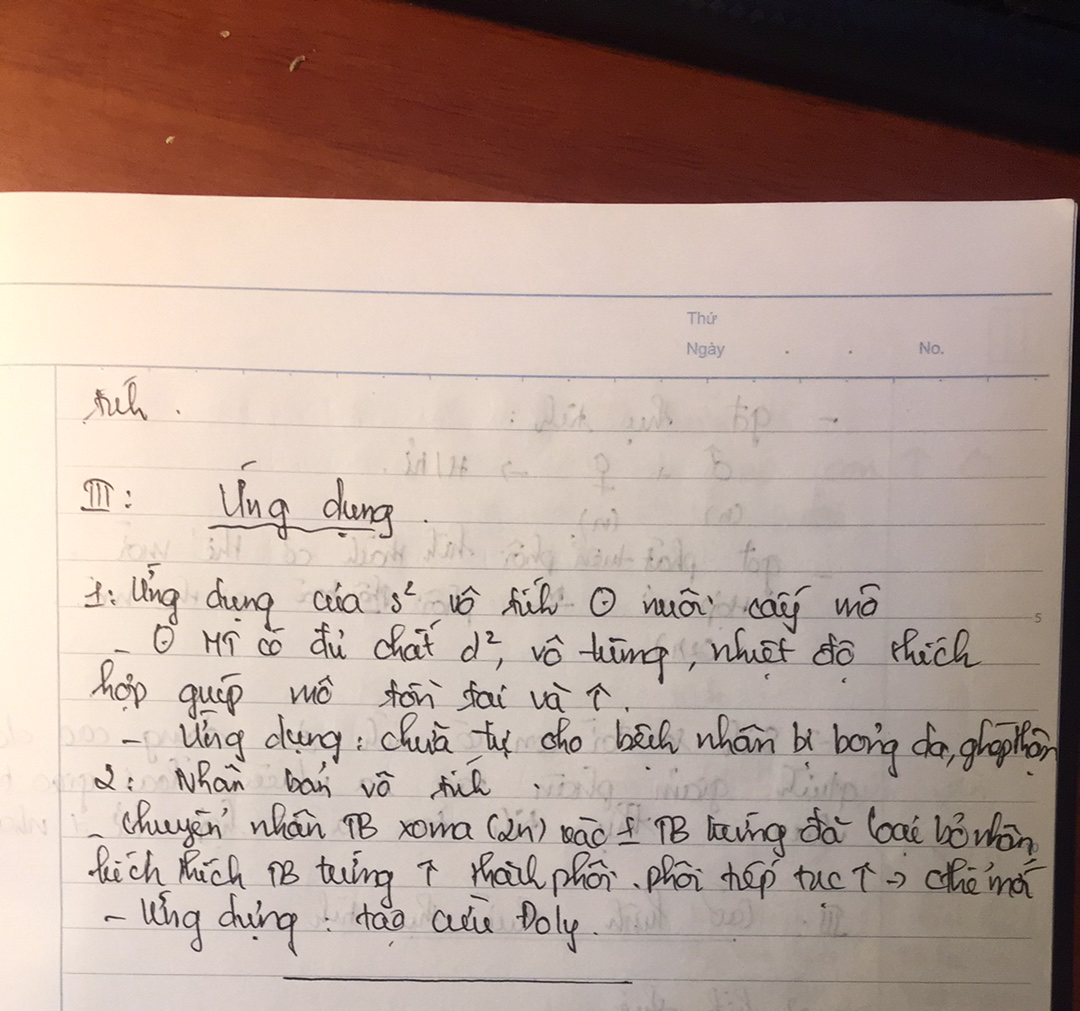 Thứ
Ngày . . No.
tính .
III: Ứng dụng .
1: Ứng dụng của s² vô tính ʘ nuôi cấy mô
- ʘ MT có đủ chất d², vô trùng, nhiệt độ thích
hợp guíp mô tồn tại và ↑.
- Ứng dụng : chưã trị cho bệnh nhân bị bỏng da, ghép thận
2: Nhân bản vô tính .
- chuyển nhân TB xoma (2n) vào 1 TB trứng đã loại bỏ nhân
kích thích TB trứng ↑ thành phôi . phôi tiếp tục ↑ → cthể mới
- Ứng dụng : tạo cừu Đoly.
5